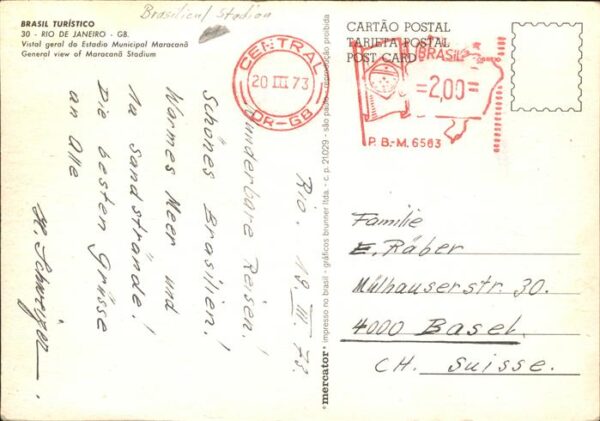 Brasilien/Stadion
BRASIL TURÍSTICO
30 - RIO DE JANEIRO - GB.
Vistal geral do Estadio Municipal Maracanã
General view of Maracanã Stadium
CENTRAL
20 III 73
DR-GB
CARTÃO POSTAL
TARJETA POSTAL
POST CARD
BRASIL
=2,00=
P.B.-M. 6563
Rio. 19. III. 73.
Wunderbare Reisen!
Schönes Brasilien!
Warmes Meer und
Sandstrände!
Die besten Grüsse
an Alle
H. Schweizer
mercator • impresso no brasil - gráficos brunner ltda. - c. p. 21.029 - são paulo - reprodução proibida
Familie
E. Räber
Mülhauserstr. 30.
4000 Basel.
CH. Suisse.